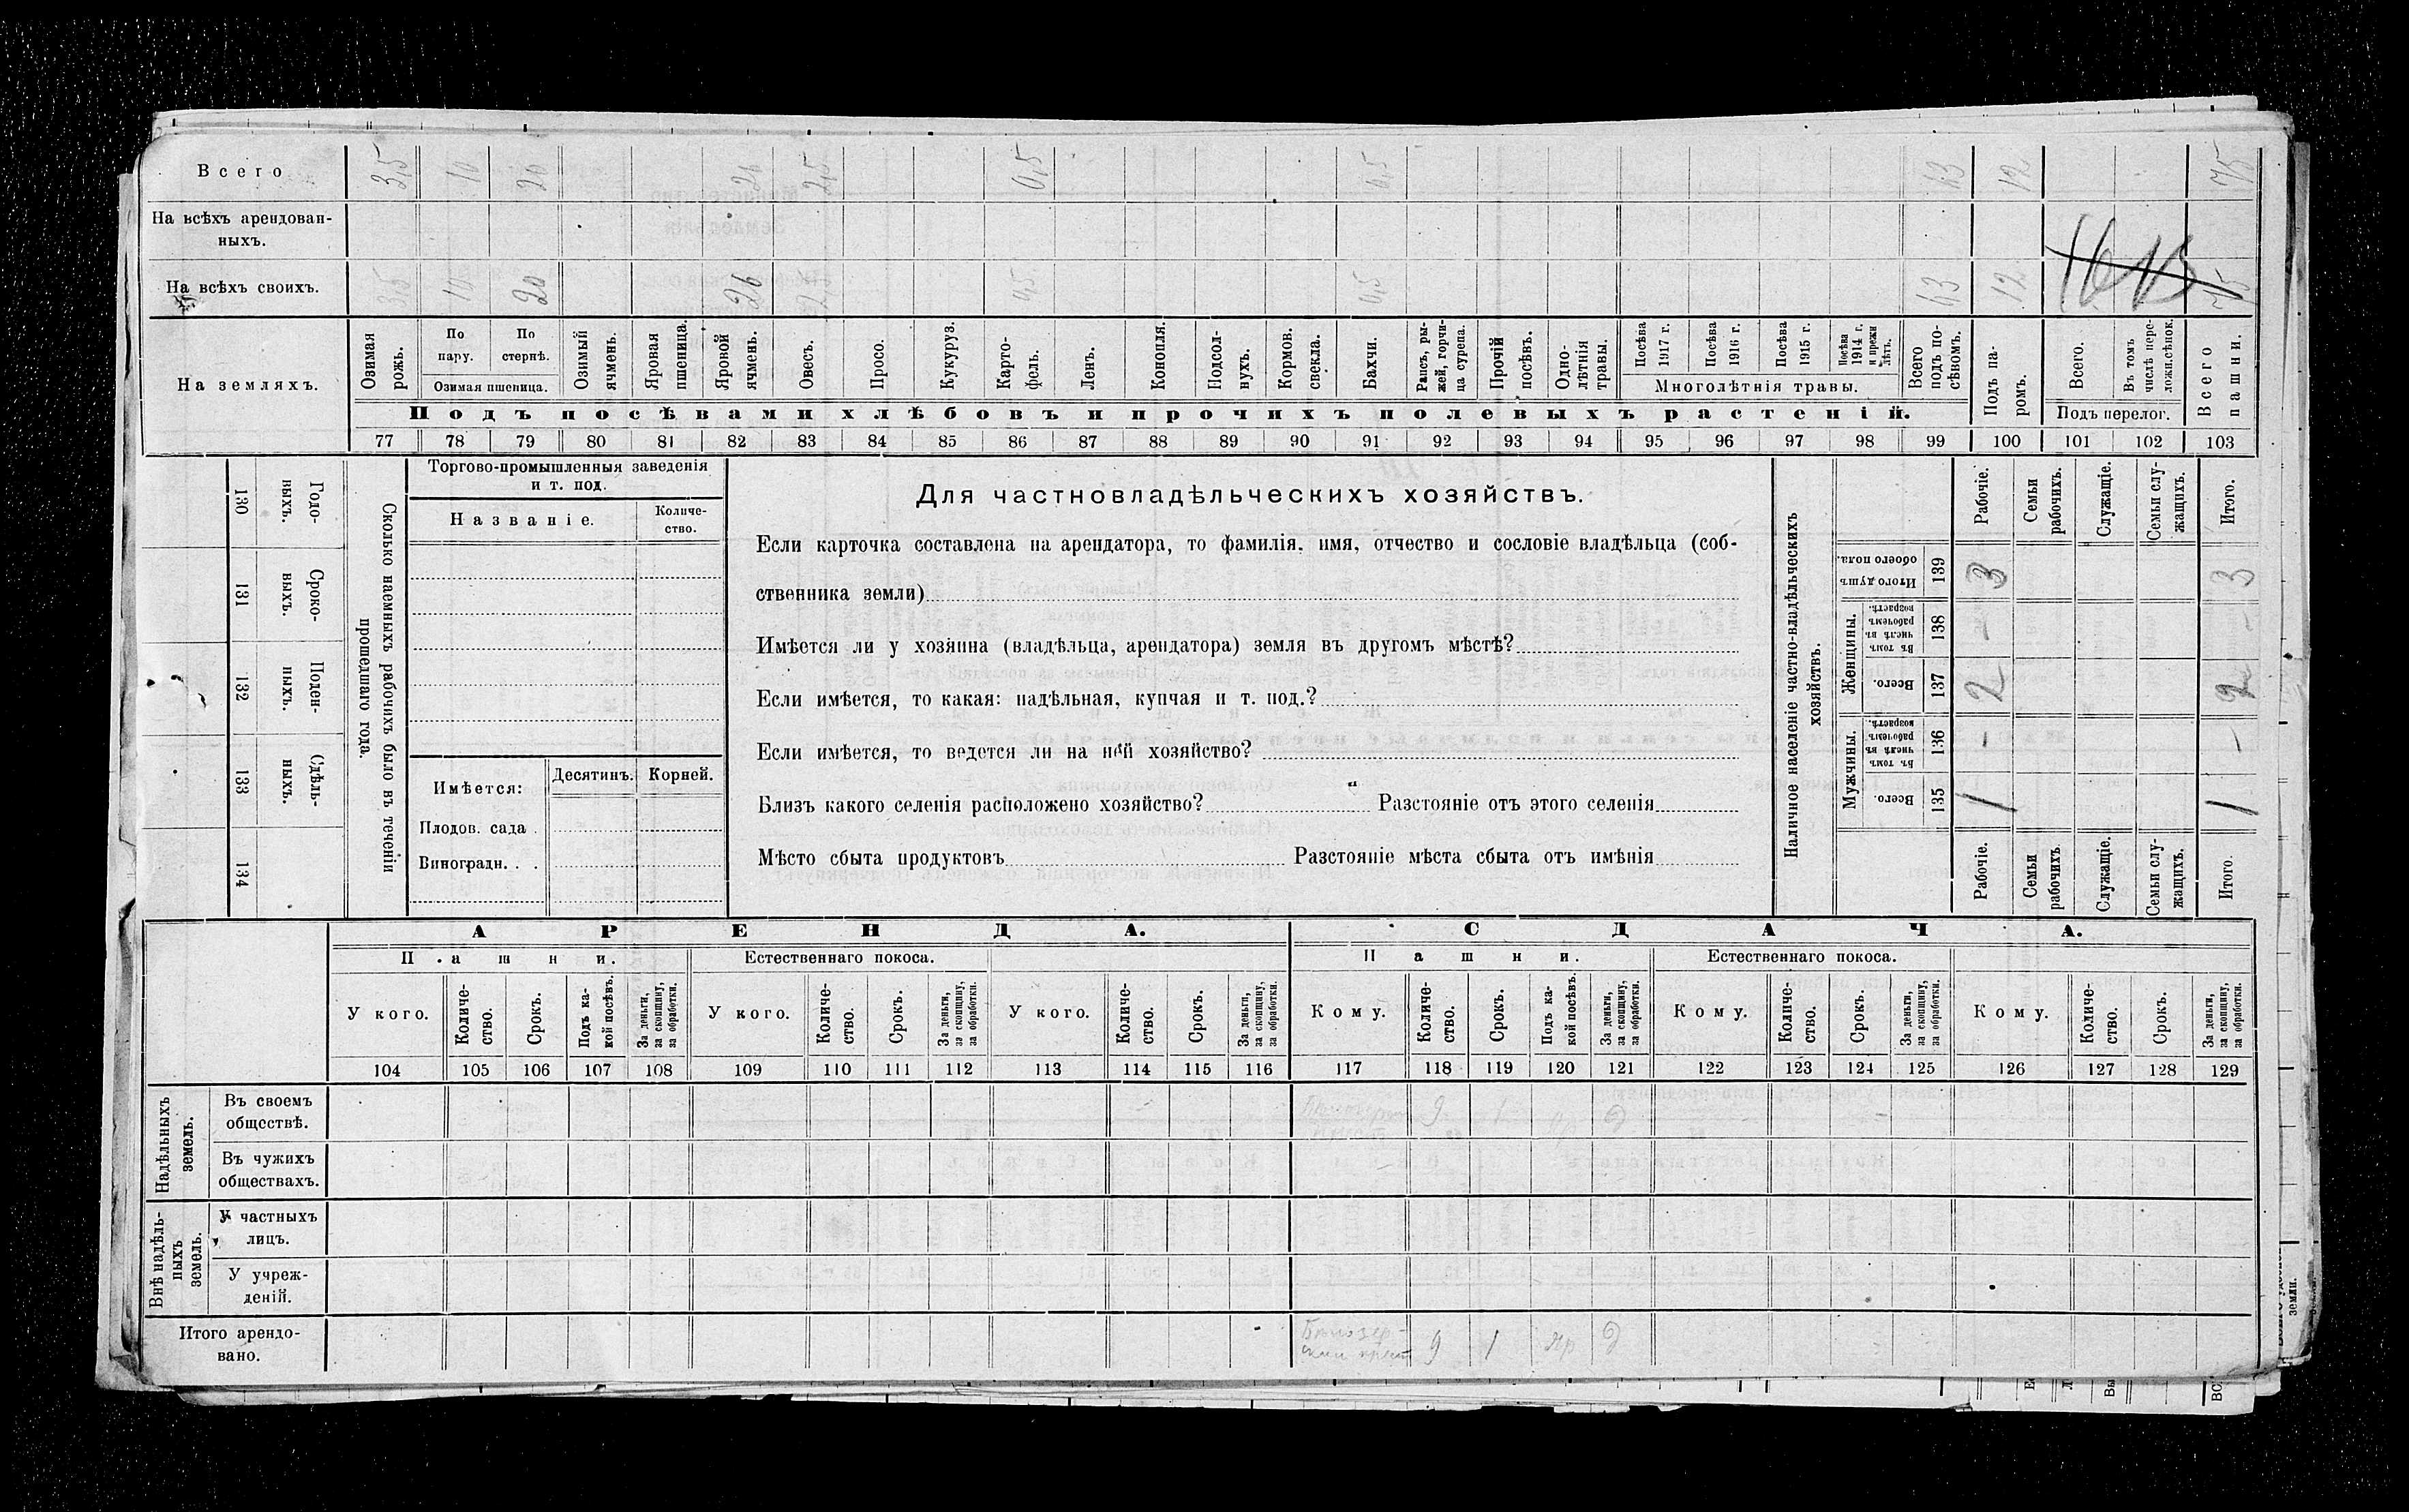 Всего 3,5 10 20 26 2,5 0,5 0,5 63 12 75
На всѣхъ арендован-
ныхъ.
На всѣхъ своихъ. 3,5 10 20 26 2,5 0,5 0,5 63 12 75
На земляхъ.
Озимая рожь.
По пару.
По стернѣ.
Озимая пшеница.
Озимый ячмень.
Яровая пшеница.
Яровой ячмень.
Овесъ.
Просо.
Кукуруз.
Карто-
фель.
Ленъ.
Конопля.
Подсол-
нухъ.
Кормов. свекла.
Бахчи.
Рапсъ, ры-
жей, горчи-
ца сурепа.
Прочій посѣвъ.
Одно-
лѣтнія травы.
Посѣва 1917 г.
Посѣва 1916 г.
Посѣва 1915 г.
Посѣва 1914 г. и прежн лѣтъ.
Многолѣтнія травы.
Всего подъ по-
сѣвомъ.
Подъ па-
ромъ.
Всего.
Въ томъ числѣ пере-
ложн.сѣнок.
Подъ перелог.
Всего пашни.
Подъ посѣвами хлѣбовъ и прочихъ полевыхъ растеній.
77 78 79 80 81 82 83 84 85 86 87 88 89 90 91 92 93 94 95 96 97 98 99 100 101 102 103
130 Годо-
ныхъ.
131 Сроко-
ныхъ.
132 Поден-
ныхъ.
133 Сдѣль-
ныхъ.
134
Сколько наемныхъ рабочихъ было въ теченіи
прошедшаго года.
Торгово-промышленныя заведенія
и т. под.
Названіе. Количе-
ство.
Имѣется: Десятинъ. Корней.
Плодов. сада .
Виноградн. . .
Для частновладѣльческихъ хозяйствъ.
Если карточка составлена на арендатора, то фамилія, имя, отчество и сословіе владѣльца (соб-
ственника земли)
Имѣется ли у хозяина (владѣльца, арендатора) земля въ другомъ мѣстѣ?
Если имѣется, то какая: надѣльная, купчая и т. под.?
Если имѣется, то ведется ли на ней хозяйство?
Близъ какого селенія расположено хозяйство? Разстояніе отъ этого селенія
Мѣсто сбыта продуктовъ Разстояніе мѣста сбыта отъ имѣнія
Наличное населеніе частно-владѣльческихъ
хозяйствъ.
Рабочіе.
Семьи рабочихъ.
Служащіе.
Семьи слу-
жащихъ.
Итого.
Итого душ обоего пола. 139 3 3
Женщины.
Въ томъ числѣ въ рабочемъ возрастѣ. 138 - -
Всего. 137 2 2
Мужчины.
Въ томъ числѣ въ рабочемъ возрастѣ. 136 - -
Всего. 135 1 1
Рабочіе.
Семьи рабочихъ
Служащіе.
Семьи слу-
жащихъ.
Итого.
АРЕНДА. СДАЧА.
Пашни. Естественнаго покоса. Пашни. Естественнаго покоса.
У кого.
Количе-
ство.
Срокъ.
Подъ ка-
кой посѣвъ.
За деньги, за скопщину, за обработки.
У кого.
Количе-
ство.
Срокъ.
За деньги, за скопщину, за обработки.
У кого.
Количе-
ство.
Срокъ.
За деньги, за скопщину, за обработки.
Кому.
Количе-
ство.
Срокъ.
Подъ ка-
кой посѣвъ.
За деньги, за скопщину, за обработки.
Кому.
Количе-
ство.
Срокъ.
За деньги, за скопщину, за обработки.
Кому.
Количе-
ство.
Срокъ.
За деньги, за скопщину, за обработки.
104 105 106 107 108 109 110 111 112 113 114 115 116 117 118 119 120 121 122 123 124 125 126 127 128 129
Надѣльныхъ земель.
Въ своемъ
обществѣ. 9 1 яр д
Въ чужихъ
обществахъ.
Внѣ надѣль-
ныхъ земель.
У частныхъ
лицъ.
У учреж-
деній.
Итого арендо-
вано. 9 1 яр д
земли.